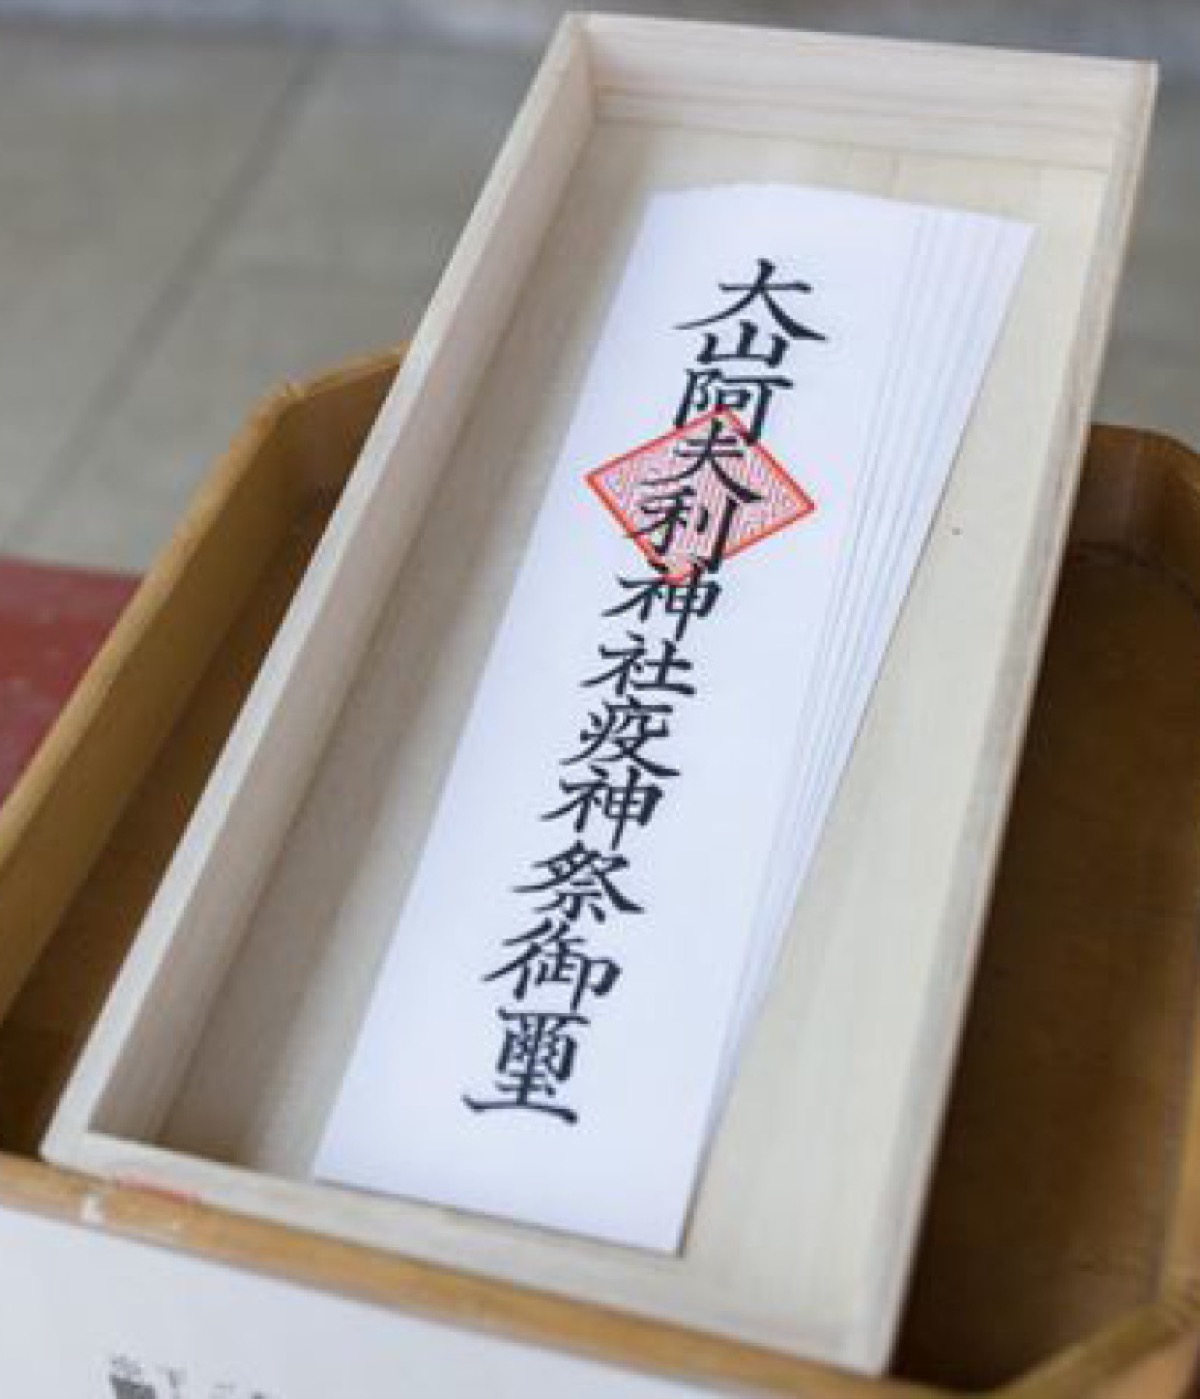 大山阿夫利神社疫神祭御璽